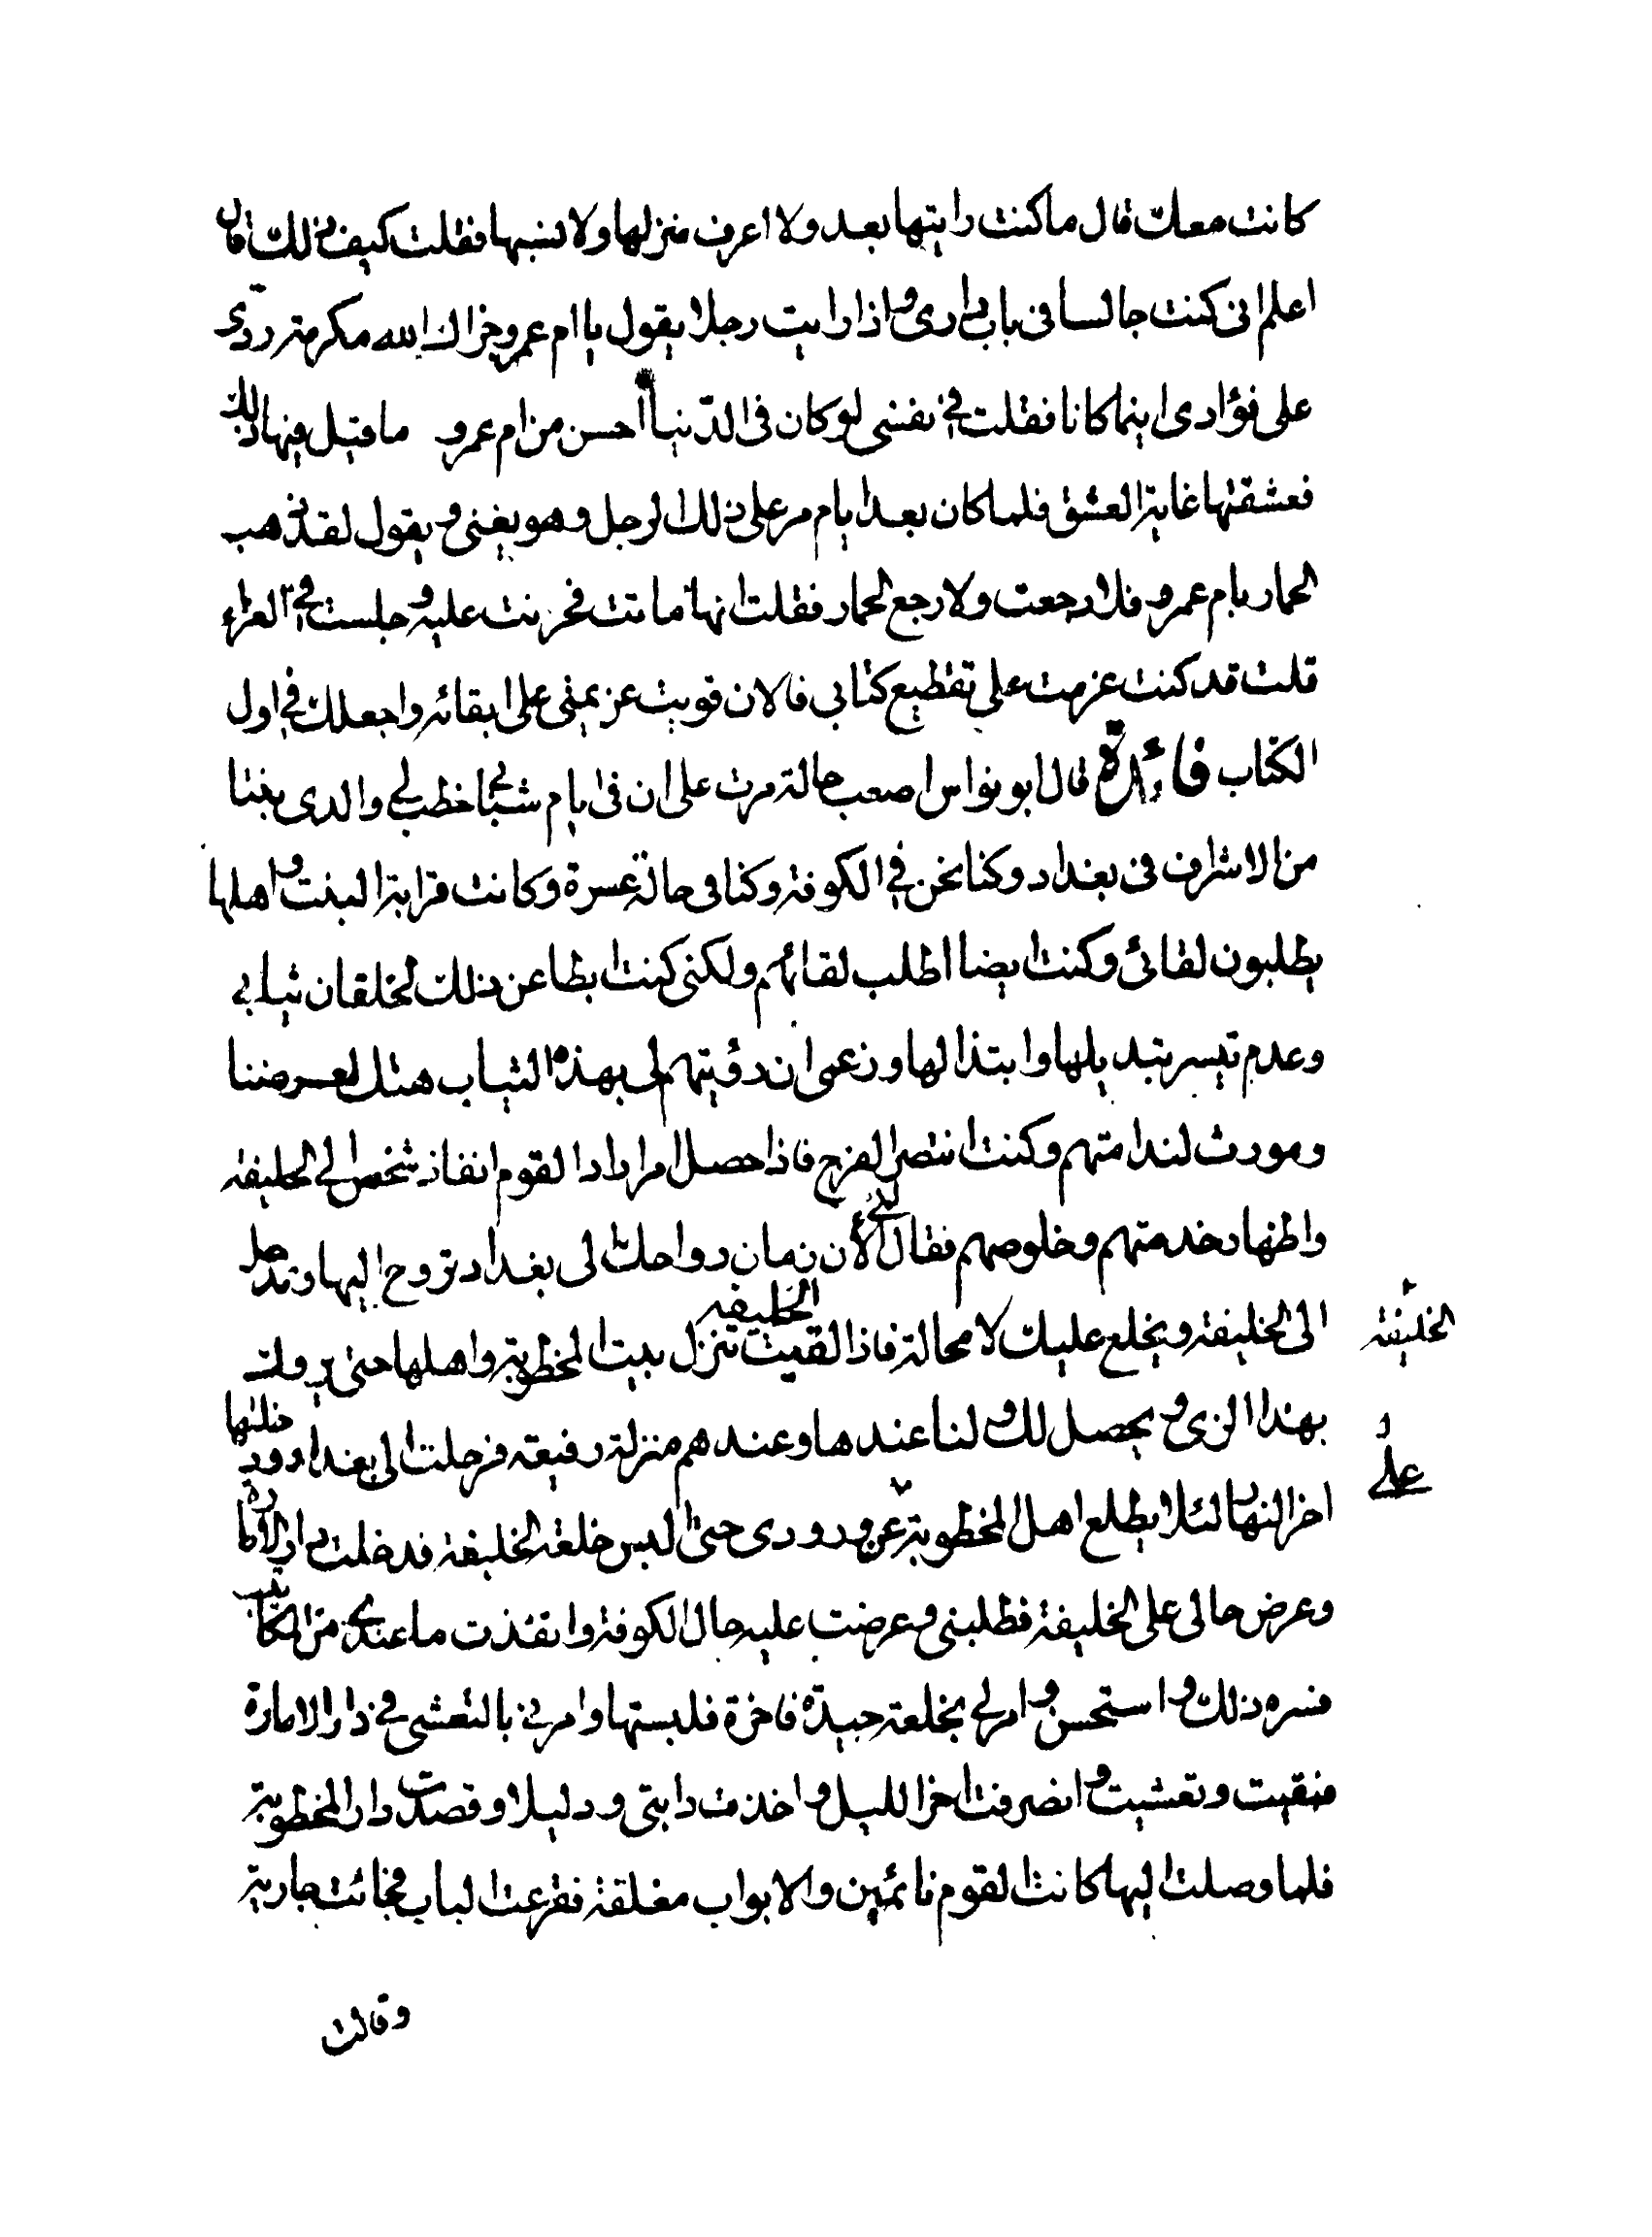 كانت معك قال ما كنت رايتها بعد ولا اعرف منزلها ولا نسبها فقلت كيف ذلك قال
اعلم انى كنت جالسا فى باب دارى و اذا رايت رجلا يقول يا ام عمرو جزاك الله مكرمة ردّى
على فؤادى اينما كانا فقلت فى نفسى لو كان فى الدّنيا احسن من ام عمرو ما قيل فيها ذلك
فعشقتها غاية العشق فلما كان بعد ايام مر على ذلك الرجل وهو يغنى و يقول لقد ذهب
الحمار بام عمرو فلا رجعت ولا رجع الحمار فقلت انها ماتت فحزنت عليه و جلست فى العزاء
قلت قد كنت عزمت على تقطيع كتابى فالان قويت عزيمتى على ابقائه واجعلك فى اول
الكتاب فائدة قال ابو نواس اصعب حالة مرت على ان فى ايام شبابى خطب لى والدى بنتا
من الاشراف فى بغداد وكنا نحن فى الكوفة وكنا فى حالة عسرة وكانت قرابة البنت و اهلها
يطلبون لقائى وكنت ايضا اطلب لقائهم ولكنى كنت ابطا عن ذلك لخلقان ثيابى
وعدم تيسر تبديلها وابتذالها وزعمى ان رؤيتهم لى بهذه الثياب هتك لعرضنا
ومورث لندامتهم وكنت انتصر الفرج فاذا حصل امر اراد القوم انفاذ شخص الى الخليفة
واظهار خدمتهم وخلوصهم فقال لى الأن زمان رواحك الى بغداد تروح اليها وتدخل
الى الخليفة ويخلع عليك لا محالة فاذا لقيت الخليفة تنزل بيت المخطوبة واهلها حتى يروك
الخليفة
بهذا الزى و يحصل لك و لنا عندها وعندهم منزلة رفيعة فرحلت الى بغداد ودخلتها
على
اخر النهار لئلا يطلع اهل المخطوبة عن ورودى حتى البس خلعة الخليفة فدخلت دار الامارة
وعرض حالى على الخليفة فطلبنى و عرضت عليه حال الكوفة وانفذت ما عندى من المكاتيب
فسره ذلك و استحسن و امر لى بخلعة جيدة فاخرة فلبستها وامرنى بالتعشى فى دار الامارة
فبقيت وتعشيت و انصرفت اخر الليل و اخذت دابتى ودليلا وقصدت دار المخطوبة
فلما وصلت اليها كانت القوم نائمين والابواب مغلقة فقرعت الباب فجائت جارية
وقالت